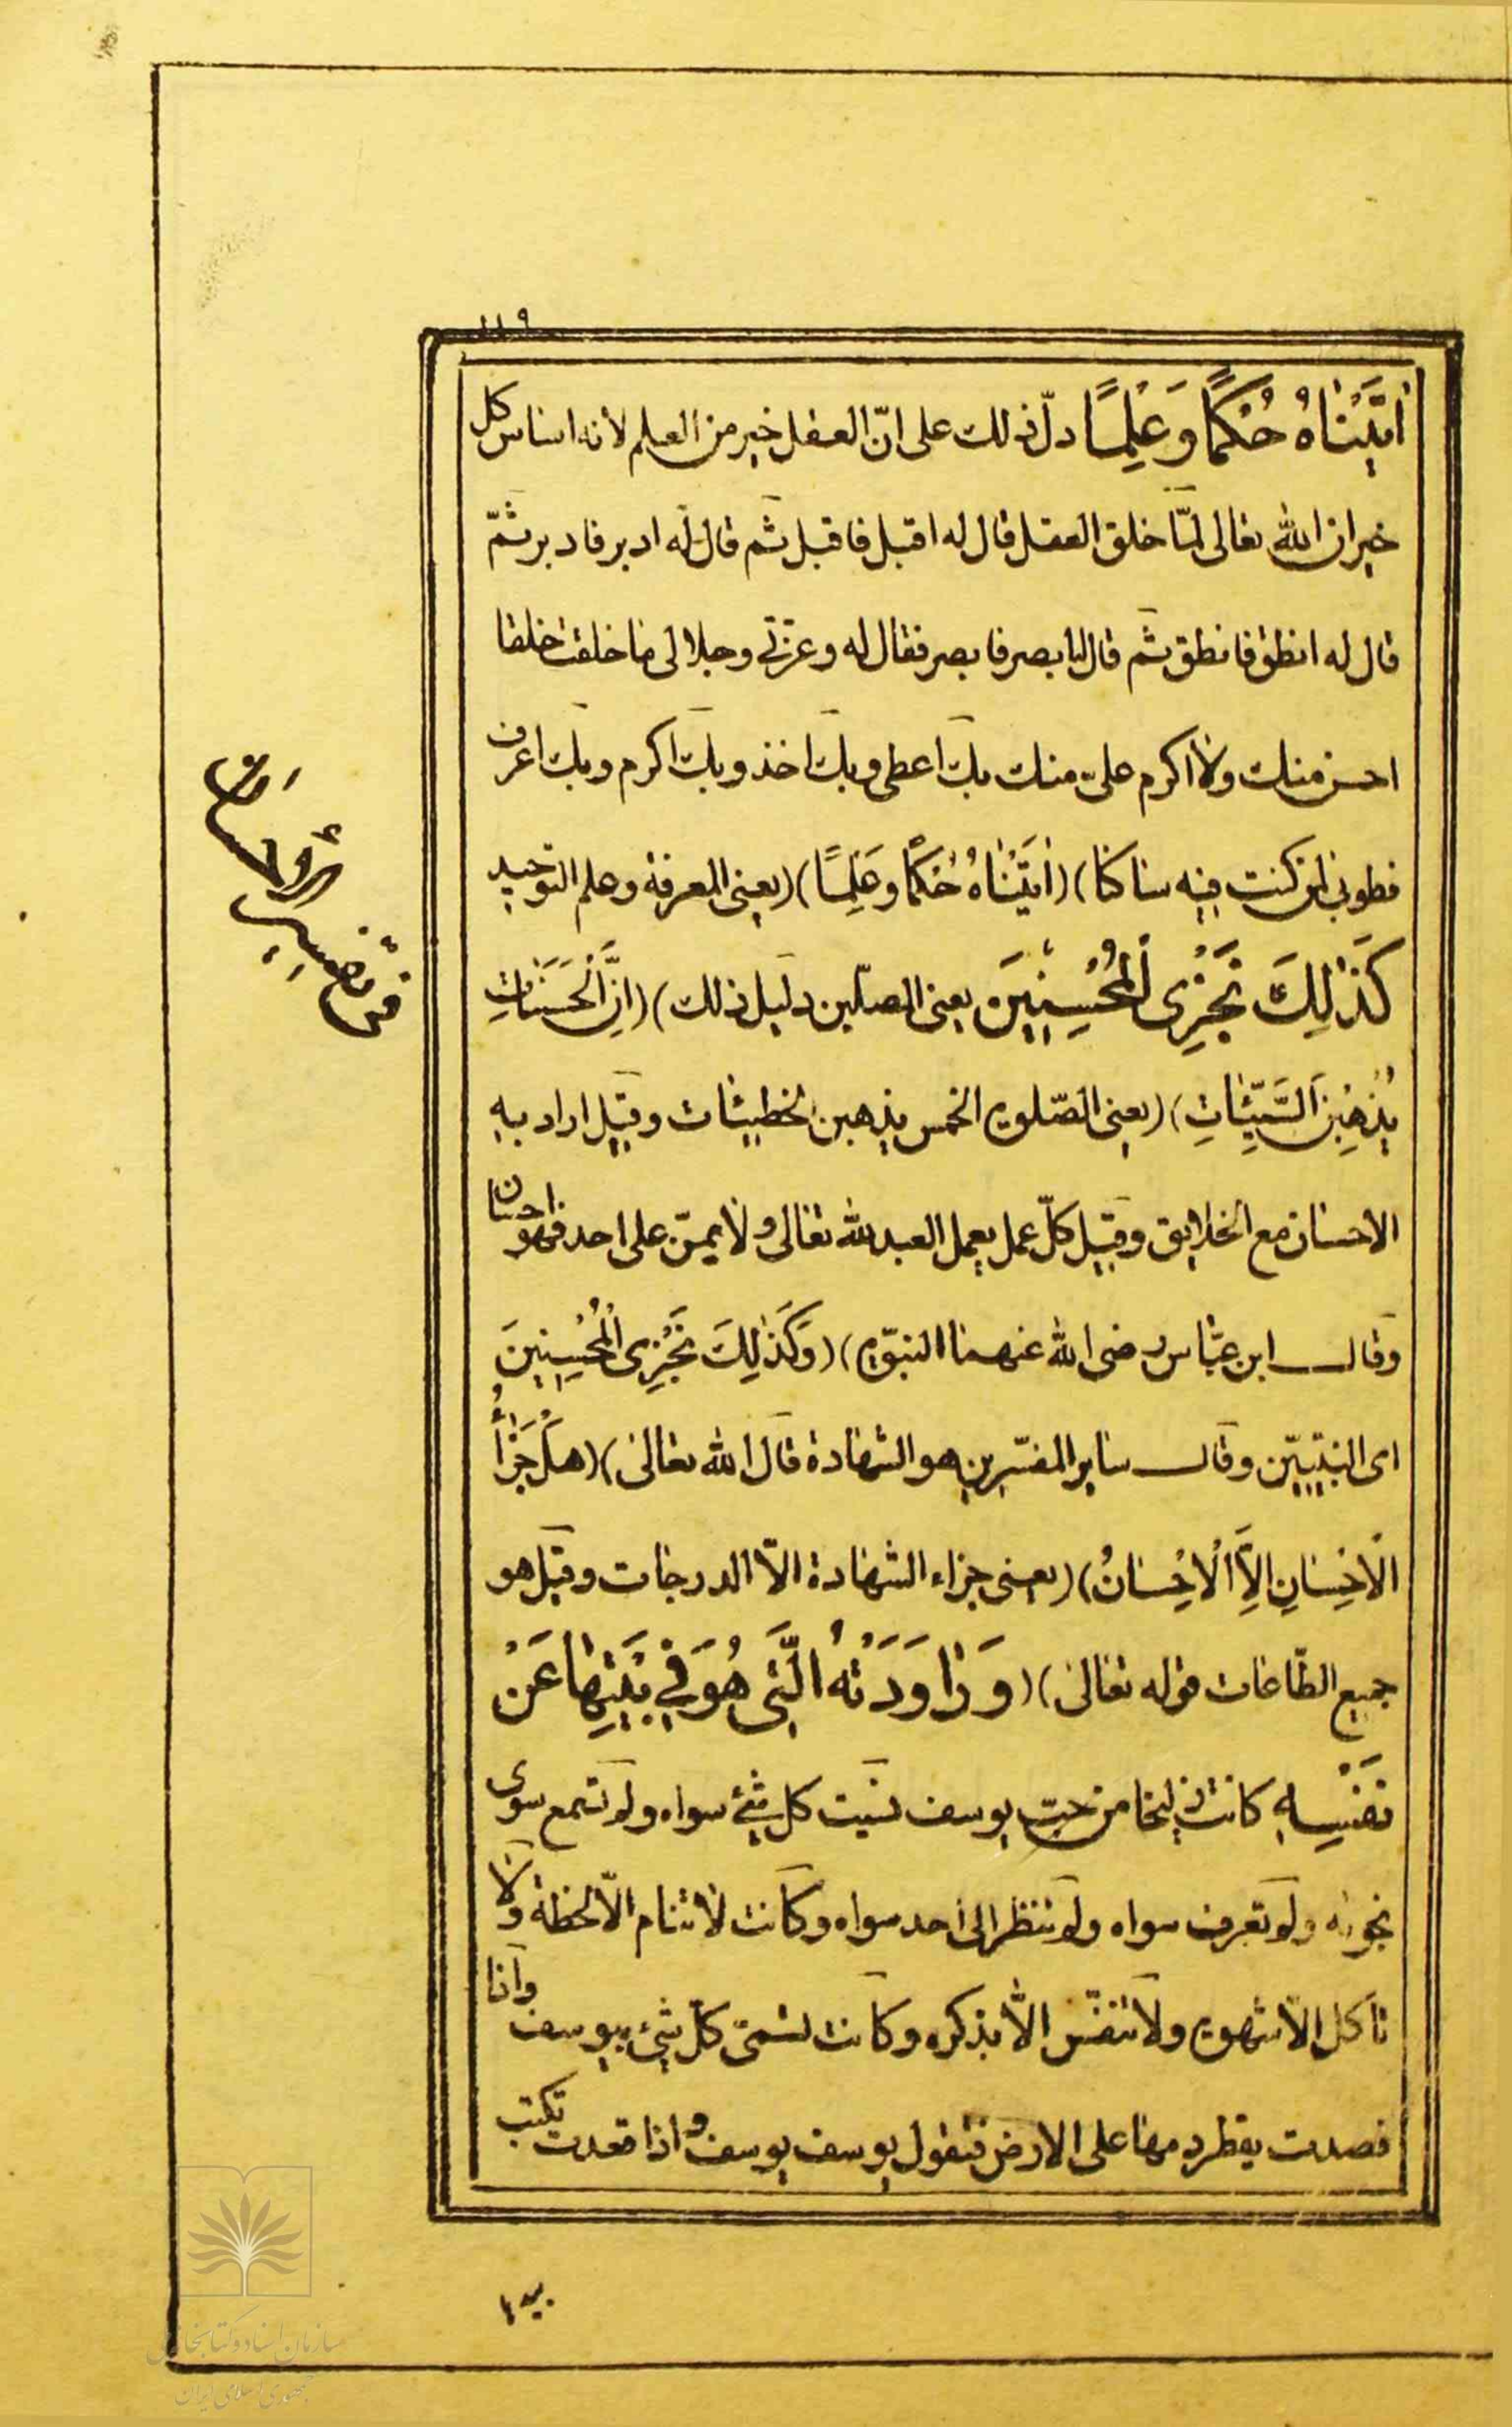 ١١٩
اٰتَيْنَاهُ حُكْمًا وَعِلْمًا دلّ ذلك على انّ العقل خير من العلم لانه اساس كل
خير ان الله تعالى لمّا خلق العقل قال له اقبل فاقبل ثم قال له ادبر فادبر ثمّ
قال له انطق فانطق ثم قال له ابصر فابصر فقال له وعزتي وجلالى ما خلقت خلقا
احسن منك ولا اكرم علىّ منك بك اعطى وبك اخذ وبك اكرم وبك اعرف
فطوبى لمن كنت فيه ساكنا) (اٰتَيْنَاهُ حُكْمًا وَعِلْمًا) (يعنى المعرفة وعلم التوحيد
كَذٰلِكَ نَجْزِى الْمُحْسِنِينَ يعنى المصلّين دليل ذلك) (اِنَّ الْحَسَنَاتِ
يُذْهِبْنَ السَّيِّئَاتِ) (يعنى الصّلوة الخمس يذهبن الخطيئات وقيل اراد به
الاحسان مع الخلايق وقيل كلّ عمل يعمل العبد لله تعالى ولا يمنّ على احد فهو احسان
وقال ابن عبّاس رضى الله عنهما النبوّة) (وَكَذٰلِكَ نَجْزِى الْمُحْسِنِينَ
اى النبيّين وقال ساير المفسّرين هو الشهادة قال الله تعالى) (هَلْ جَزَاۤءُ
الْاِحْسَانِ اِلاَّ الْاِحْسَانُ) (يعنى جزاء الشهادة الاّ الدرجات وقيل هو
جميع الطّاعات قوله تعالى) (وَرَاوَدَتْهُ الَّتِى هُوَ فِى بَيْتِهَا عَنْ
نَفْسِهِ كانت زليخا من حبّ يوسف نسيت كل شئ سواه ولم تسمع سوى
نجواه ولم تعرف سواه ولم تنظر الى احد سواه وكانت لا تنام الاّ لحظة ولا
تاكل الاّ شهوة ولا تتنفّس الاّ بذكره وكانت تسمّى كلّ شئ بيوسف واذا
فصدت يقطر دمها على الارض فتقول يوسف يوسف واذا قعدت تكتب